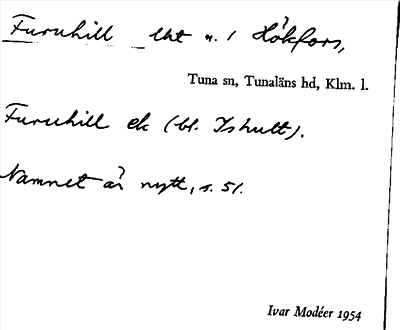 Furuhill lht u. / Hökfors,
Tuna sn, Tunaläns hd, Klm. l.
Furuhill ek (bl. Ishult).
Namnet är nytt, s. 51.
Ivar Modéer 1954